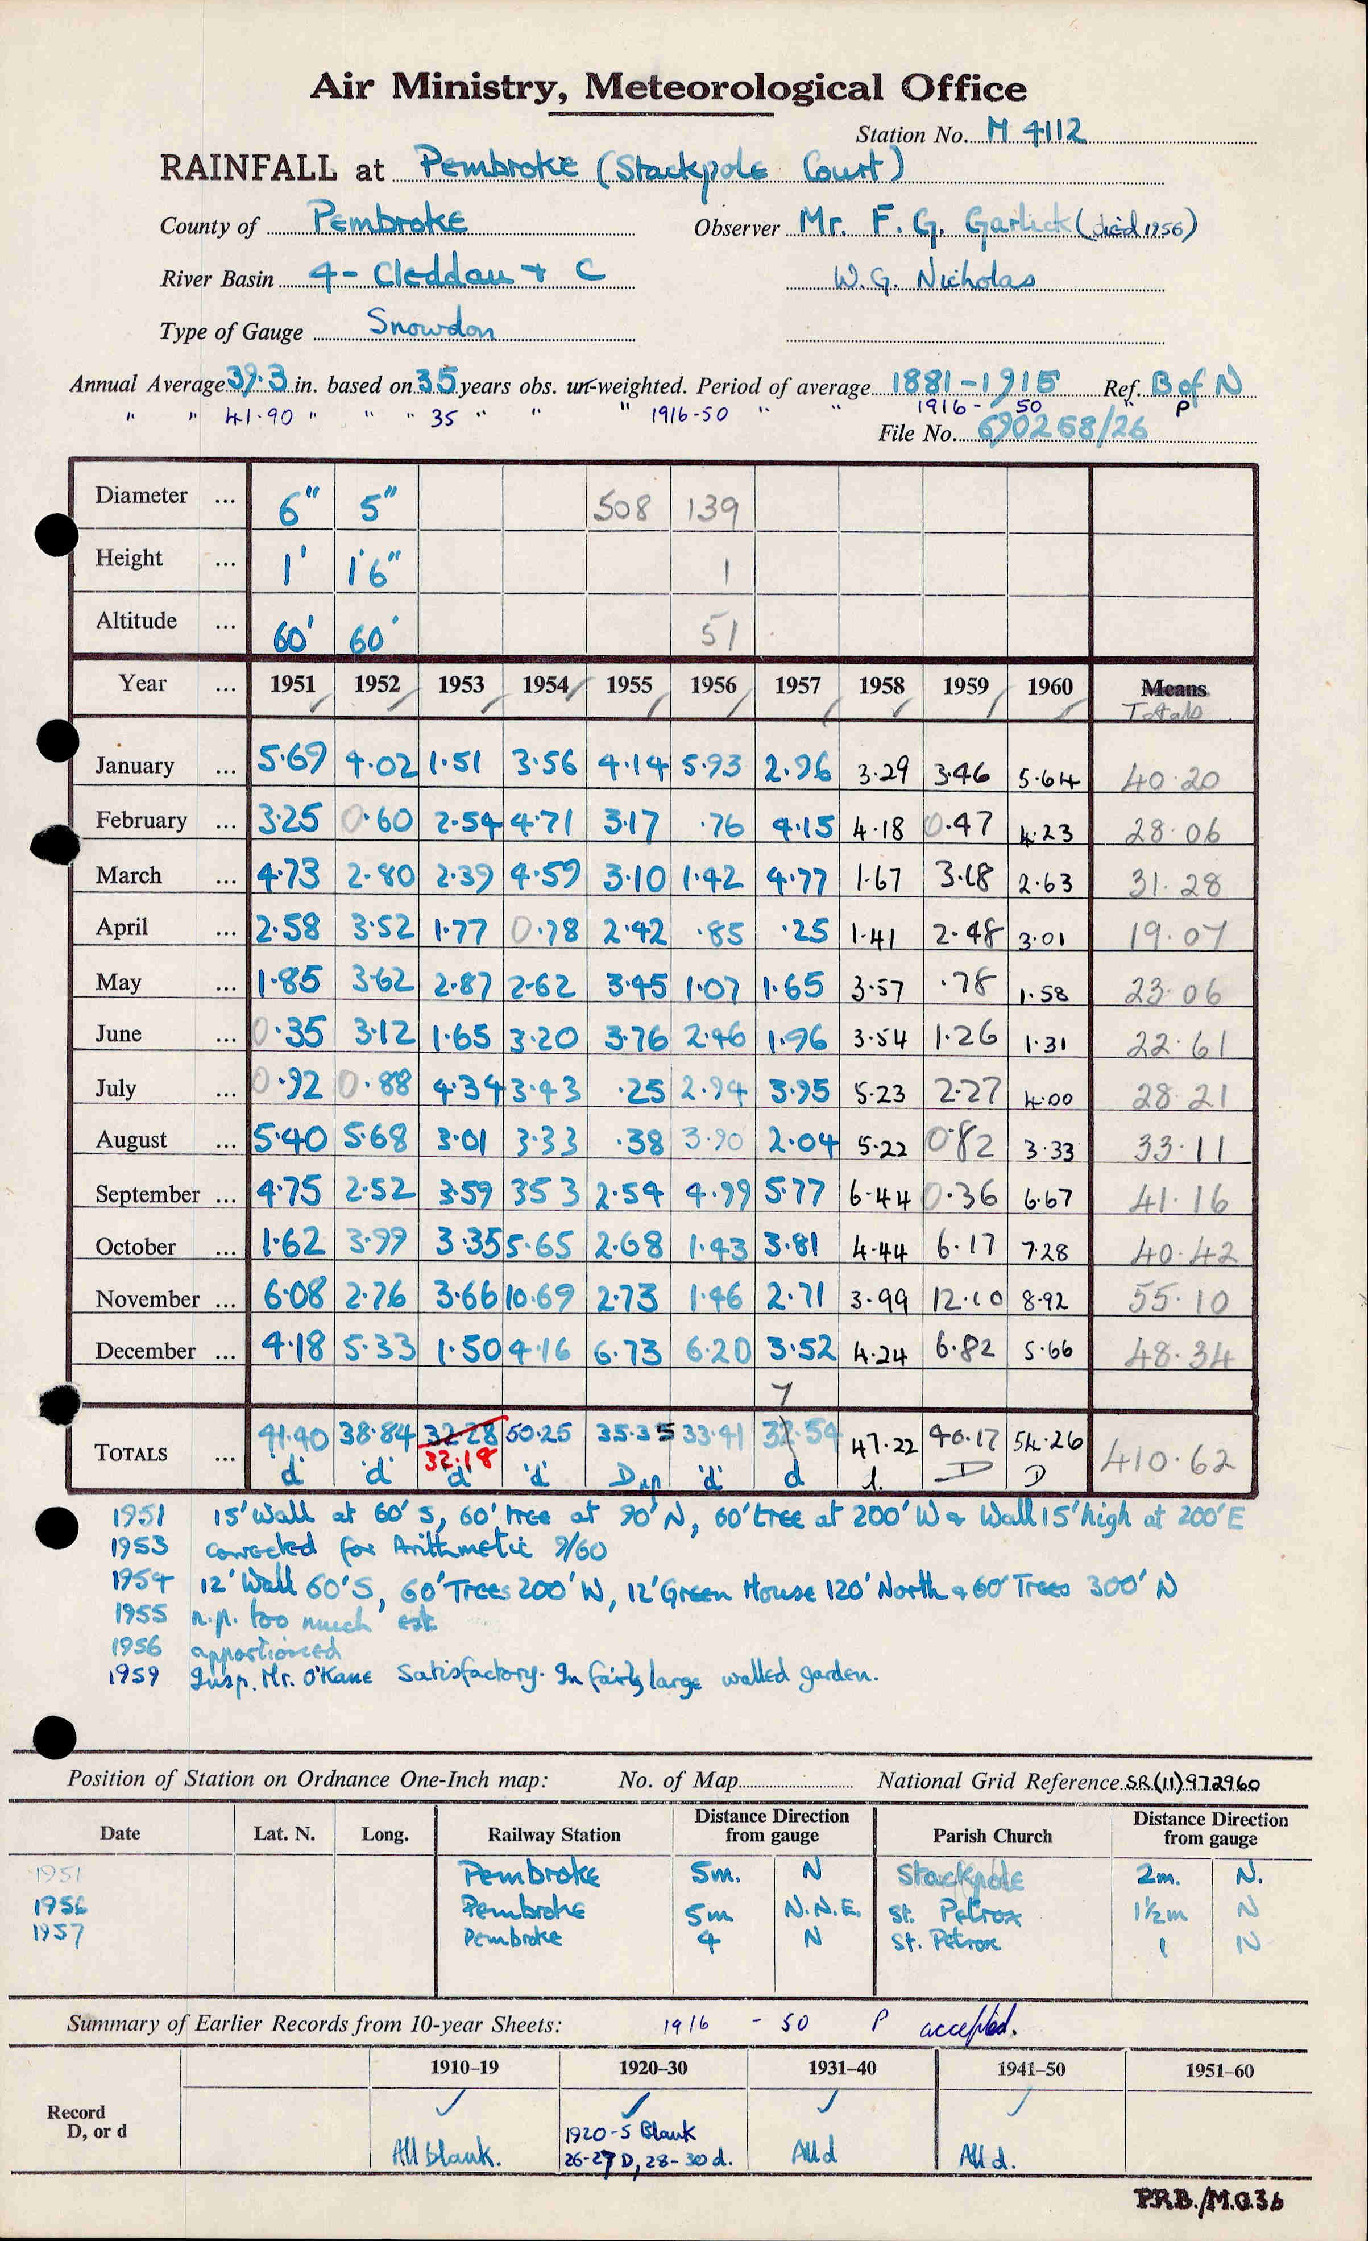 Air Ministry, Meteorological Office
Station No. M 4112
RAINFALL at Pembroke (Stackpole Court)
County of Pembroke Observer Mr. F. G. Garlick (died 1956)
River Basin 4 - Cleddau + C W. G. Nicholas
Type of Gauge Snowdon
Annual Average 39.3 in. based on 35 years obs. un-weighted. Period of average 1881-1915 Ref. B of N
" " 41.90 " " " 35 " " " 1916-50 " " 1916-50 " P
File No. 690258/26
Diameter ... 6" 5" 508 139
Height ... 1' 1'6" 1
Altitude ... 60' 60' 51
Year ... 1951 1952 1953 1954 1955 1956 1957 1958 1959 1960 Means
Totals
January ... 5.69 4.02 1.51 3.56 4.14 5.93 2.96 3.29 3.46 5.64 40.20
February ... 3.25 0.60 2.54 4.71 3.17 .76 4.15 4.18 0.47 4.23 28.06
March ... 4.73 2.80 2.39 4.59 3.10 1.42 4.77 1.67 3.18 2.63 31.28
April ... 2.58 3.52 1.77 0.78 2.42 .85 .25 1.41 2.48 3.01 19.07
May ... 1.85 3.62 2.87 2.62 3.45 1.07 1.65 3.57 .78 1.58 23.06
June ... 0.35 3.12 1.65 3.20 3.76 2.46 1.96 3.54 1.26 1.31 22.61
July ... 0.92 0.88 4.34 3.43 .25 2.94 3.95 5.23 2.27 4.00 28.21
August ... 5.40 5.68 3.01 3.33 .38 3.90 2.04 5.22 0.82 3.33 33.11
September ... 4.75 2.52 3.59 3.53 2.54 4.99 5.77 6.44 0.36 6.67 41.16
October ... 1.62 3.99 3.35 5.65 2.68 1.43 3.81 4.44 6.17 7.28 40.42
November ... 6.08 2.76 3.66 10.69 2.73 1.46 2.71 3.99 12.10 8.92 55.10
December ... 4.18 5.33 1.50 4.16 6.73 6.20 3.52 4.24 6.82 5.66 48.34
7
TOTALS ... 41.40 38.84 32.28 50.25 35.35 33.41 37.54 47.22 40.17 54.26 410.62
32.18
'd' 'd' 'd' 'd' 'd' d d. D D
1951 15' Wall at 60' S, 60' tree at 90' N, 60' tree at 200' W & Wall 15' high at 200' E
1953 corrected for Arithmetic 9/60
1954 12' Wall 60' S, 60' Trees 200' W, 12' Green House 120' North & 60' Trees 300' N
1955 n.p. too much est.
1956 apportioned
1959 Insp. Mr. O'Kane Satisfactory. In fairly large walled garden.
Position of Station on Ordnance One-Inch map: No. of Map National Grid Reference SR(11)972960
Date Lat. N. Long. Railway Station Distance Direction from gauge Parish Church Distance Direction from gauge
1951 Pembroke 5m. N Stackpole 2m. N.
1956 Pembroke 5m N.N.E. St. Petrox 1½m N
1957 Pembroke 4 N St. Petrox 1 N
Summary of Earlier Records from 10-year Sheets: 1916 - 50 P accepted.
1910–19 1920–30 1931–40 1941–50 1951–60
Record
D, or d
✓ ✓ ✓ ✓
1920-5 Blank
All blank. 26-27 D, 28-30 d. All d All d.
P.R.B./M.O.36